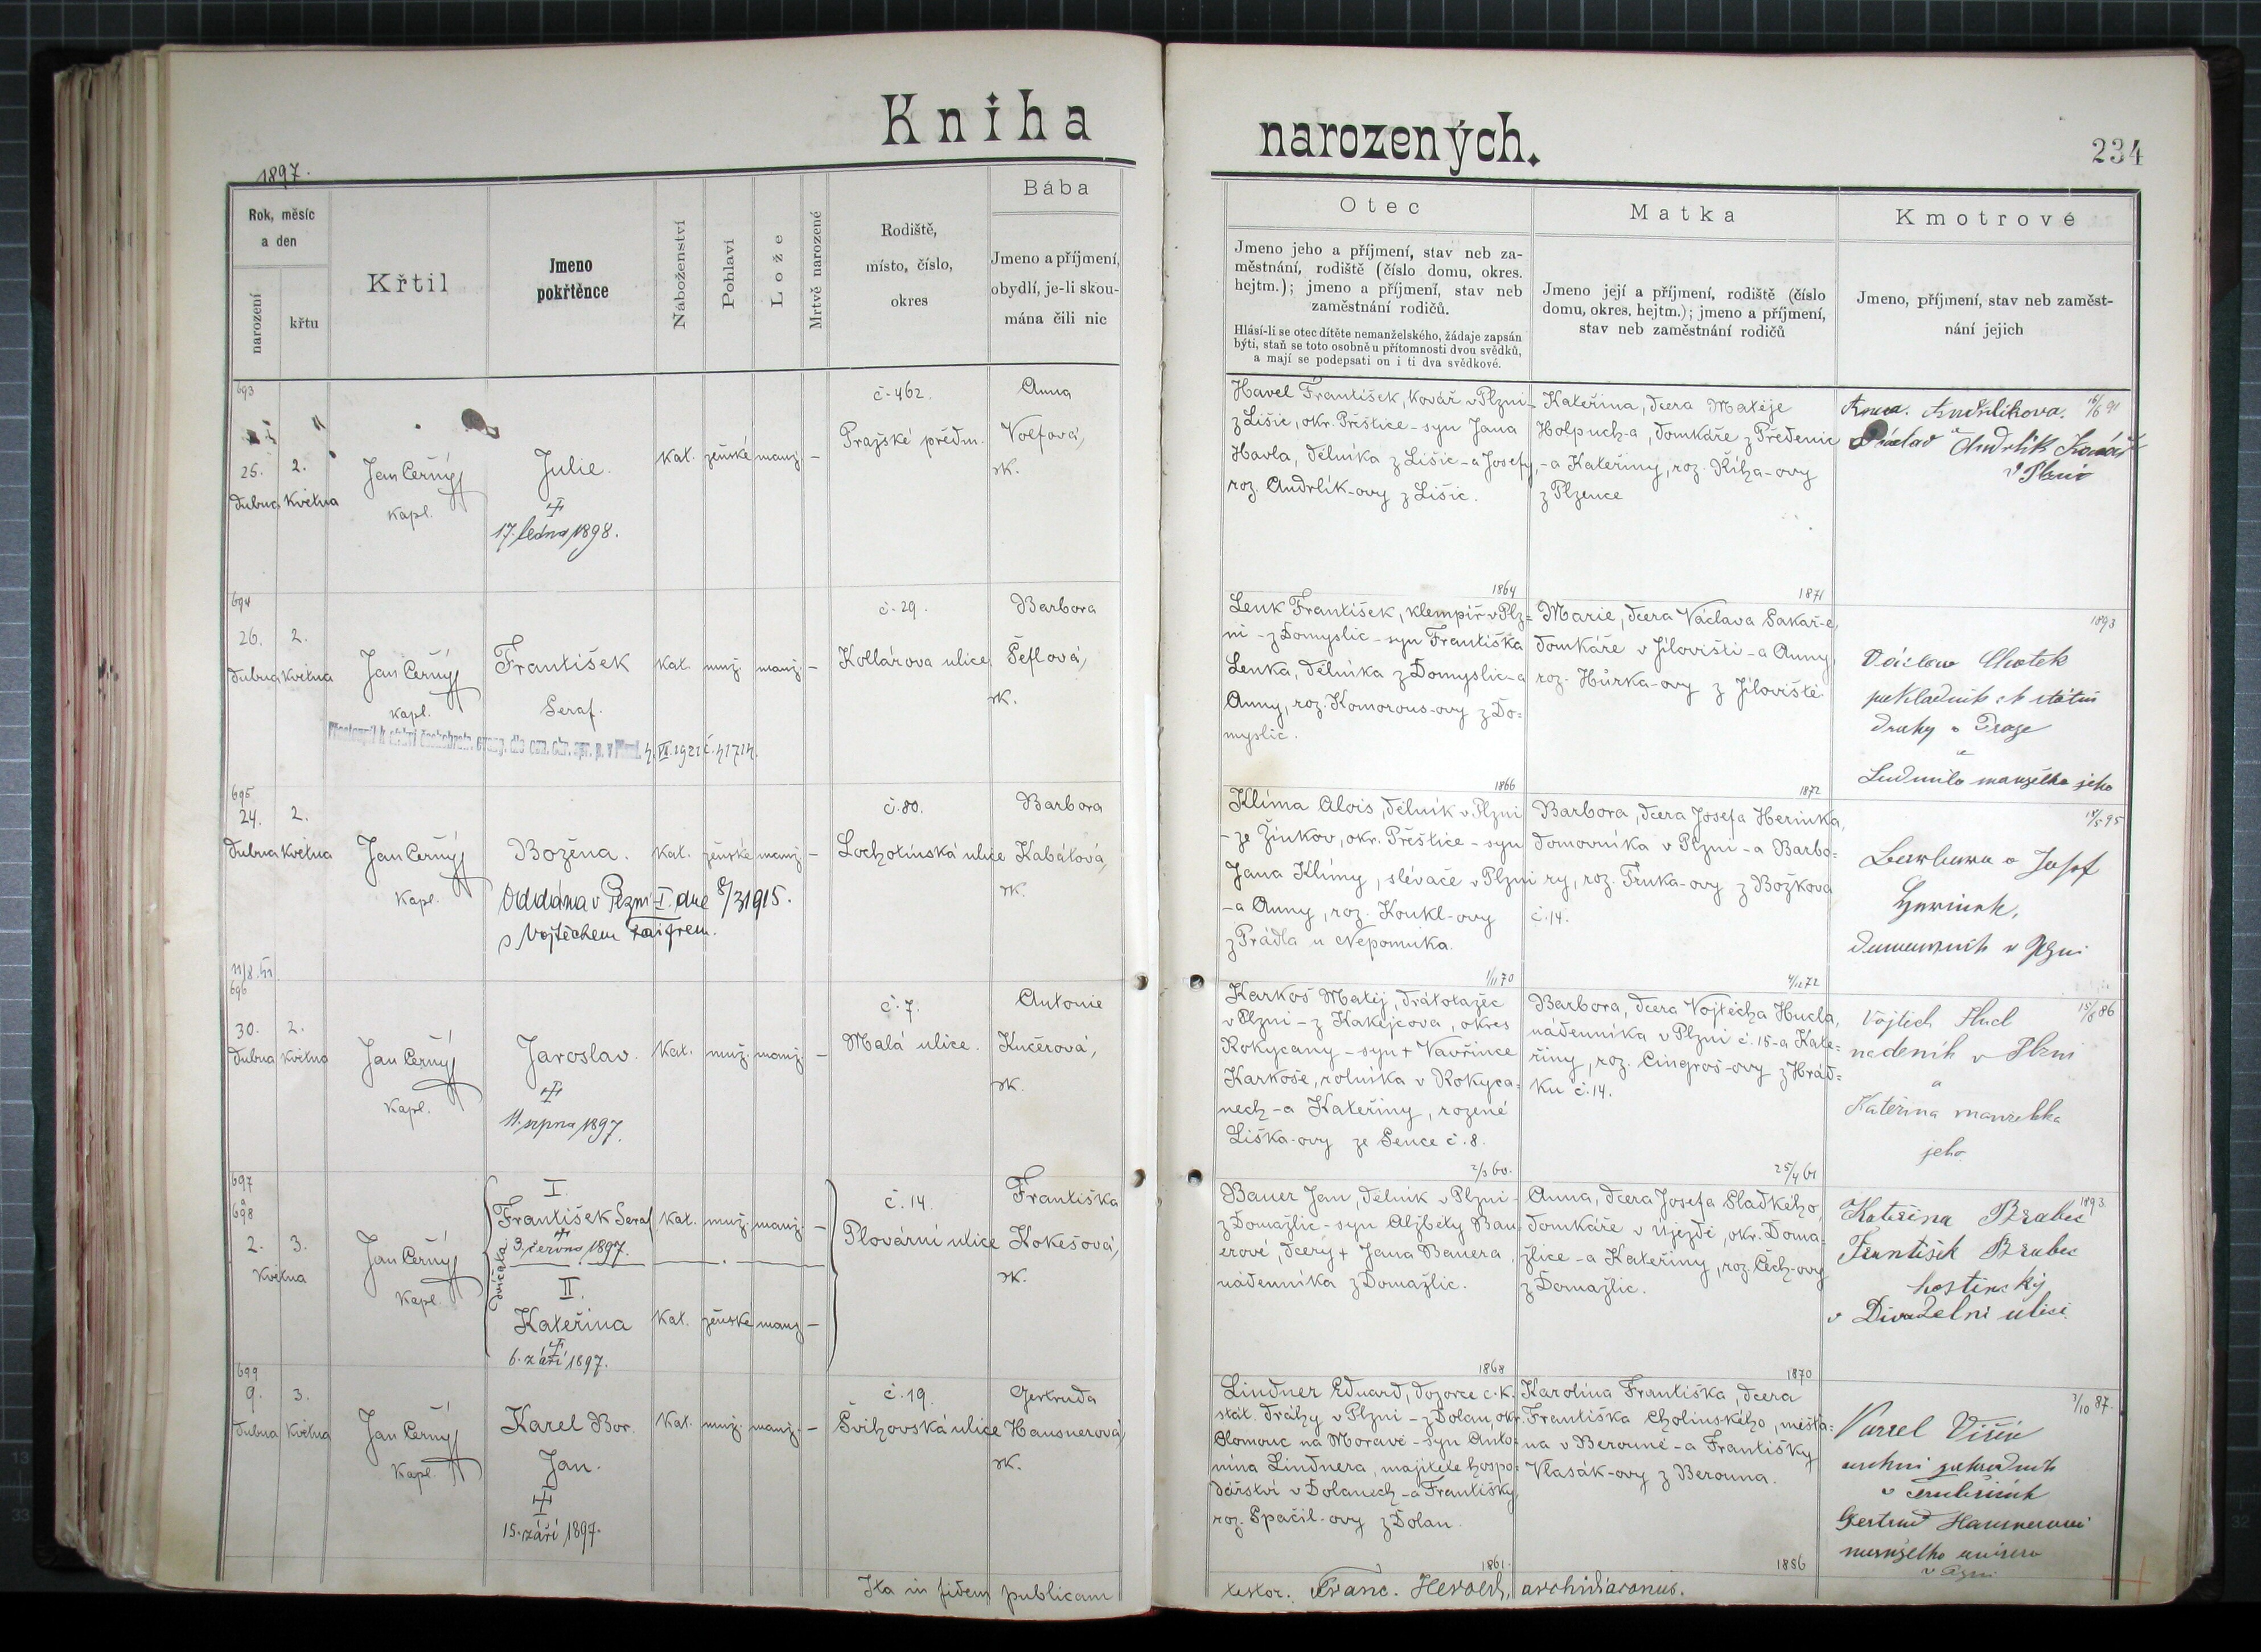 Kniha
narozených.
234
1897.
Rok, měsíc
a den
narození
křtu
Křtil
Jmeno
pokřtěnce
Náboženství
Pohlaví
Lože
Mrtvě narozené
Rodiště,
místo, číslo,
okres
Bába
Jmeno a příjmení,
obydlí, je-li skou-
mána čili nic
Otec
Jmeno jeho a příjmení, stav neb za-
městnání, rodiště (číslo domu, okres.
hejtm.); jmeno a příjmení, stav neb
zaměstnání rodičů.
Hlásí-li se otec dítěte nemanželského, žádaje zapsán
býti, staň se toto osobně u přítomnosti dvou svědků,
a mají se podepsati on i ti dva svědkové.
Matka
Jmeno její a příjmení, rodiště (číslo
domu, okres. hejtm.); jmeno a příjmení,
stav neb zaměstnání rodičů
Kmotrové
Jmeno, příjmení, stav neb zaměst-
nání jejich
693
25.
dubna
2.
května
Jan Černý
kapl.
Julie.
17. ledna 1898.
kat.
ženské
manž.
–
č. 462.
Pražské předm.
Anna
Volfová,
zk.
Havel František, kovář v Plzni
z Lišic, okr. Přeštice - syn Jana
Havla, dělníka z Lišic - a Josefy,
roz. Andrlík-ovy z Lišic.
1864
Kateřina, dcera Matěje
Holpuch-a, domkáře z Předenic
- a Kateřiny, roz. Říha-ovy
z Plzence
1871
Anna Andrlíkova.
Václav Andrlík Kovář
v Plzni
694
26.
dubna
2.
května
Jan Černý
kapl.
František
Seraf.
kat.
muž.
manž.
–
č. 29.
Kollárova ulice
Barbora
Šeflová,
zk.
Lenk František, klempíř v Plz=
ni - z Domyslic - syn Františka
Lenka, dělníka z Domyslic - a
Anny, roz. Komorous-ovy z Do=
myslic.
1866
Marie, dcera Václava Sakař-e,
domkáře v Jílovišti - a Anny,
roz. Hůrka-ovy z Jíloviště
1872
1893
Václav Chotek
pokladník státní
dráhy v Praze
a
Ludmila manželka jeho
695
24.
dubna
2.
května
Jan Černý
kapl.
Božena.
Oddána v Plzni I. dne 8/3 1915.
s Vojtěchem
kat.
ženské
manž.
–
č. 80.
Lochotínská ulice
Barbora
Kabátová,
zk.
Klíma Alois, dělník v Plzni
- ze Žinkov, okr. Přeštice - syn
Jana Klímy, slévače v Plzni
- a Anny, roz. Koukl-ovy
z Prádla u Nepomuka.
1/11 70
Barbora, dcera Josefa Herinka,
domovníka v Plzni - a Barbo=
ry, roz. Fruka-ovy z Božkova
č. 14.
4/12 72
Barbora a Josef
Herinek,
domovník v Plzni
696
30.
dubna
2.
května
Jan Černý
kapl.
Jaroslav.
11. srpna 1897.
kat.
muž.
manž.
–
č. 7.
Malá ulice.
Antonie
Kučerová,
zk.
Karkoš Matěj, drátotažec
v Plzni - z Kakejcova, okres
Rokycany - syn + Vavřince
Karkoše, rolníka v Rokyca=
nech - a Kateřiny, rozené
Liška-ovy ze Sence č. 8.
2/3 60.
Barbora, dcera Vojtěcha Hucla,
nádenníka v Plzni č. 15 - a Kate=
řiny, roz. Cingroš-ovy z Hrád=
ku č. 14.
25/4 61
15/6 86
Vojtěch Hucl
nádeník v Plzni
a
Kateřina manželka
jeho
697
a
698
2.
3.
května
Jan Černý
kapl.
dvojčátka
I.
František Seraf
3. června 1897.
II.
Kateřina
6. září 1897.
kat.
muž.
manž.
–
kat.
ženské
manž.
–
č. 14.
Plovární ulice
Františka
Kokešová,
zk.
Bauer Jan, dělník v Plzni -
z Domažlic - syn Alžběty Bau=
erové, dcery + Jana Bauera,
nádenníka z Domažlic.
1868
Anna, dcera Josefa Sladkého,
domkáře v Újezdě, okr. Doma=
žlice - a Kateřiny, roz. Čech-ovy
z Domažlic.
1870
1893
Kateřina Brabec
František Brabec
hostinský
v Divadelní ulici.
699
9.
dubna
3.
května
Jan Černý
kapl.
Karel Bor.
Jan.
15. září 1897.
kat.
muž.
manž.
–
č. 19.
Švihovská ulice
Gertruda
Hausnerová,
zk.
Lindner Eduard, dozorce c. k.
stát. dráhy v Plzni - z Dolan, okr.
Olomouc na Moravě - syn Anto=
nína Lindnera, majitele hospo=
dářství v Dolanech - a Františky,
roz. Spáčil-ovy z Dolan.
1861.
Karolina Františka, dcera
Františka Cholínského, měšťa=
na v Berouně - a Františky
Vlasák-ovy z Berouna.
1886
3/10 87.
Karel
Gertrud Hausnerová
Ita in fidem publicam
testor. Franc. Herold, archidiaconus.